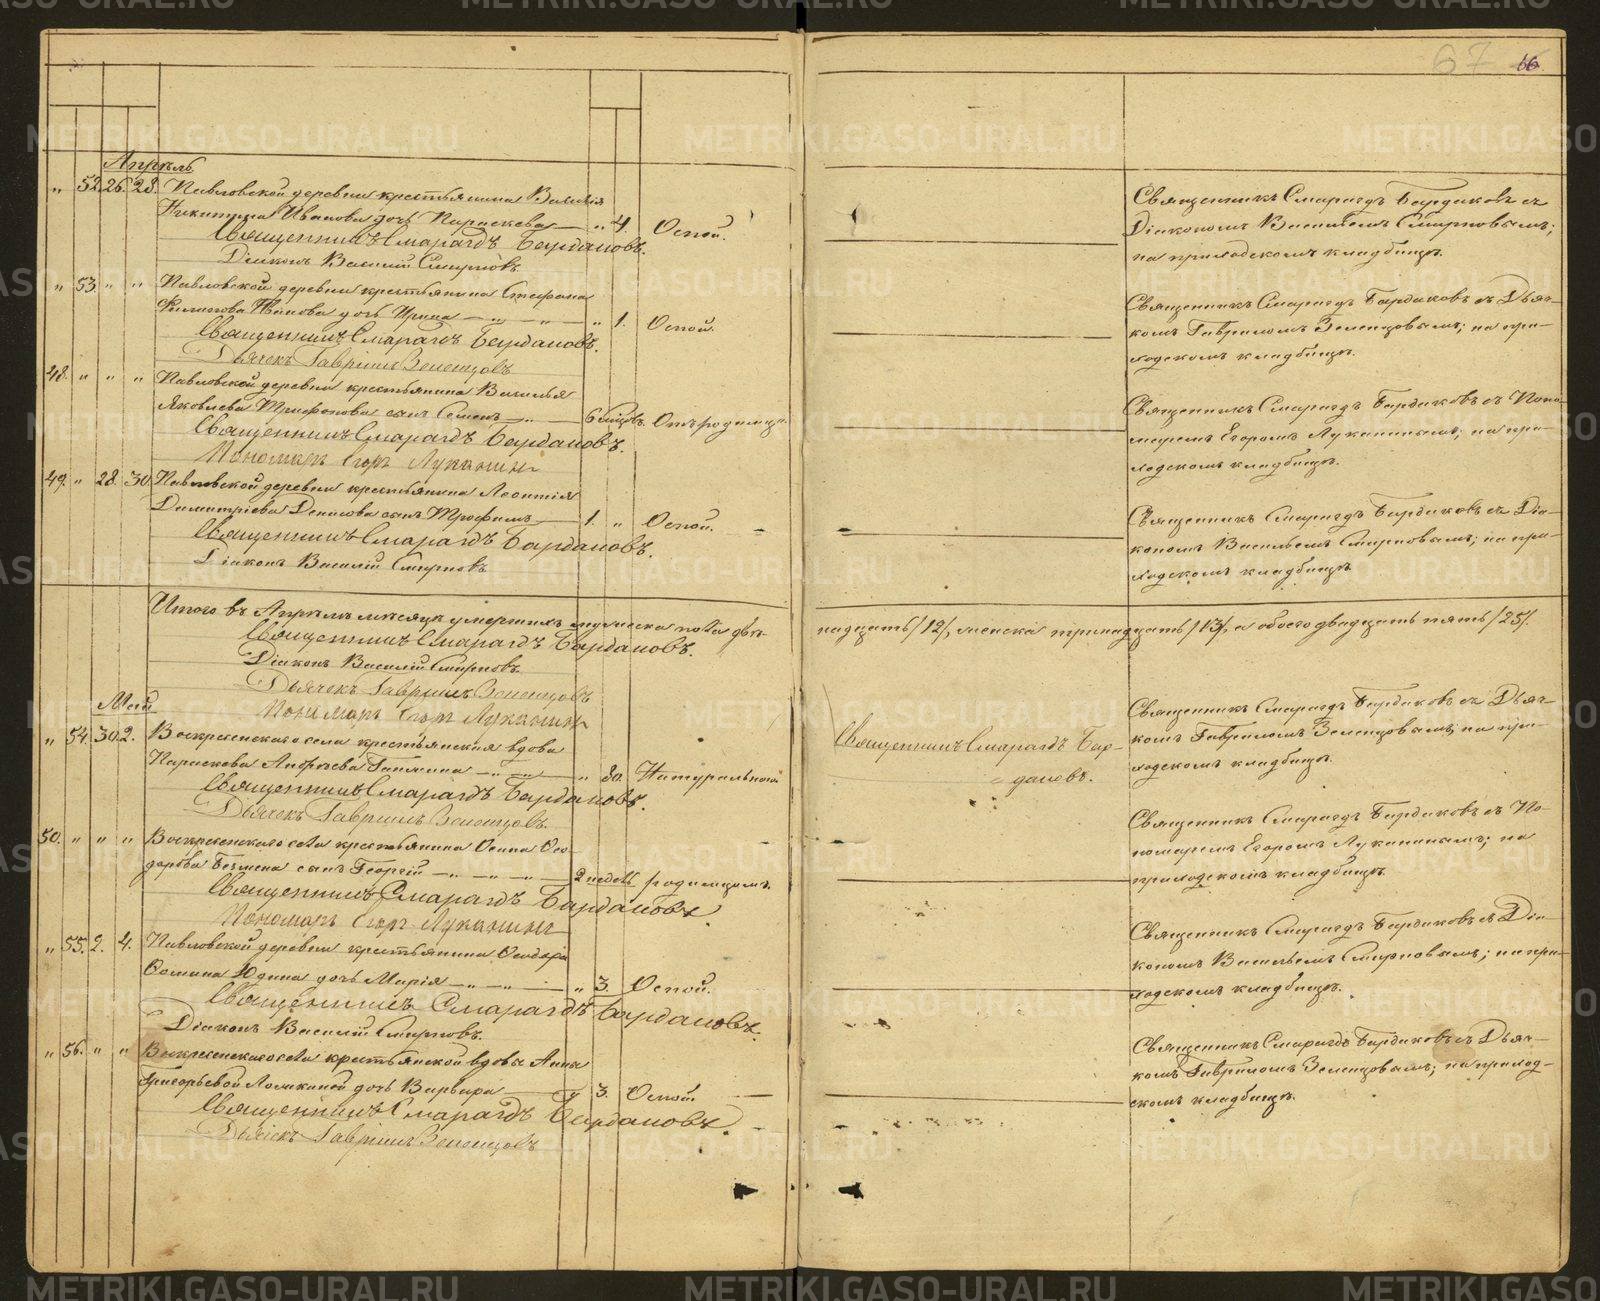 67 66.
Апрѣль
" 52. 26. 28. Павловской деревни крестьянина Василія
Никитина Иванова дочь Параскева — " 4. Оспой.
Священникъ Смарагдъ Бардаковъ.
Діаконъ Василій Смирновъ
Священникъ Смарагдъ Бардаковъ съ
Діакономъ Василіемъ Смирновымъ;
на приходскомъ кладбищѣ.
" 53. " " Павловской деревни крестьянина Стефана
Иванова дочь Ирина — " — " — " 1. Оспой.
Священникъ Смарагдъ Бардаковъ.
Дьячекъ Гавріилъ Зеленцовъ
Священникъ Смарагдъ Бардаковъ съ Дьяч-
комъ Гавріиломъ Зеленцовымъ; на при-
ходскомъ кладбищѣ.
48. " " " Павловской деревни крестьянина Василья
Яковлева Трифонова сынъ Семенъ — " — 6 мѣсцовъ. Отъ родимца.
Священникъ Смарагдъ Бардаковъ.
Пономарь Егоръ Луканинъ
Священникъ Смарагдъ Бардаковъ съ Поно-
маремъ Егоромъ Луканинымъ; на при-
ходскомъ кладбищѣ.
49. " 28. 30. Павловской деревни крестьянина Леонтія
Димитріева Денисова сынъ Трофимъ — 1. " Оспой.
Священникъ Смарагдъ Бардаковъ.
Діаконъ Василій Смирновъ
Священникъ Смарагдъ Бардаковъ съ Діа-
кономъ Васильемъ Смирновымъ; на при-
ходскомъ кладбищѣ
Итого въ Апрѣлѣ мѣсяцѣ умершихъ мужеска пола двѣ-
надцать /12/, женска тринадцать /13/, а обоего двадцать пять /25/.
Священникъ Смарагдъ Бардаковъ.
Діаконъ Василій Смирновъ
Дьячекъ Гавріилъ Зеленцовъ
Пономарь Егоръ Луканинъ
Май
" 54. 30. 2. Воскресенскаго села крестьянская вдова
Параскева Андреева — " — " 80. Натурально
Священникъ Смарагдъ Бардаковъ.
Дьячекъ Гавріилъ Зеленцовъ
Священникъ Смарагдъ Бар-
даковъ.
Священникъ Смарагдъ Бардаковъ съ Дьяч-
комъ Гавріиломъ Зеленцовымъ; на при-
ходскомъ кладбищѣ.
50. " " " Воскресенскаго села крестьянина Осипа Ѳео-
дорова сынъ Георгій — " — " — " — 2 недѣль родимцемъ.
Священникъ Смарагдъ Бардаковъ
Пономарь Егоръ Луканинъ
Священникъ Смарагдъ Бардаковъ съ По-
номаремъ Егоромъ Луканинымъ; на
приходскомъ кладбищѣ.
" 55. 2. 4. Павловской деревни крестьянина Ѳеодора
Ѳомина Юдина дочь Марія — " — " — " 3. Оспой.
Священникъ Смарагдъ Бардаковъ.
Діаконъ Василій Смирновъ.
Священникъ Смарагдъ Бардаковъ съ Діа-
кономъ Васильемъ Смирновымъ; на при-
ходскомъ кладбищѣ.
" 56. " " Воскресенскаго села крестьянской вдовы Анны
Григорьевой дочь Варвара — " 3. Оспой.
Священникъ Смарагдъ Бардаковъ
Дьячекъ Гавріилъ Зеленцовъ
Священникъ Смарагдъ Бардаковъ съ Дьяч-
комъ Гавріиломъ Зеленцовымъ; на приход-
скомъ кладбищѣ.
METRIKI.GASO-URAL.RU